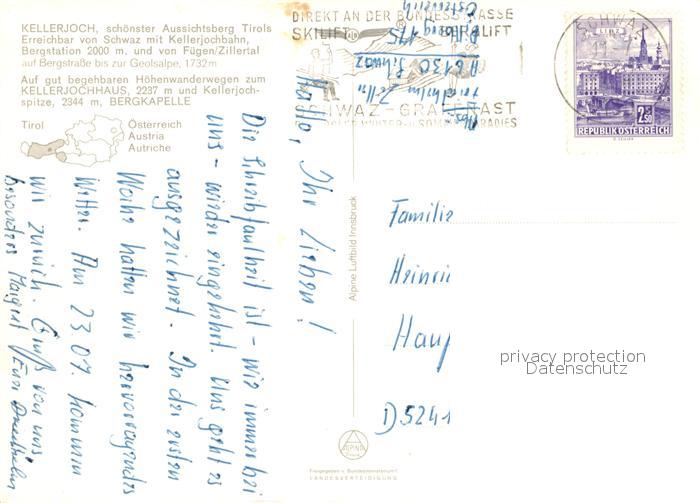 KELLERJOCH, schönster Aussichtsberg Tirols
Erreichbar von Schwaz mit Kellerjochbahn,
Bergstation 2000 m. und von Fügen/Zillertal
auf Bergstraße bis zur Geolsalpe, 1732 m
Auf gut begehbaren Höhenwanderwegen zum
KELLERJOCHHAUS, 2237 m und Kellerjoch-
spitze, 2344 m, BERGKAPELLE
Tirol
Österreich
Austria
Autriche
DIREKT AN DER BUNDESSTRASSE
SKILIFT
SCHWAZ - GRAFENAST
SCHWAZ
LINZ
2.50
REPUBLIK ÖSTERREICH
A 6130 Schwaz
Österreich
Hallo, Ihr Lieben!
Die Schreibfaulheit ist - wie immer bei
uns - wieder eingekehrt. Uns geht es
ausgezeichnet. In der ersten
Woche hatten wir hervorragendes
Wetter. Am 23.07. kommen
wir zurück. Gruß von uns
besonders Margret
Alpine Luftbild Innsbruck
Familie
Heinri
Hauf
D 5241
privacy protection
Datenschutz
ALPINE
Freigegeben v. Bundesministerium f.
LANDESVERTEIDIGUNG